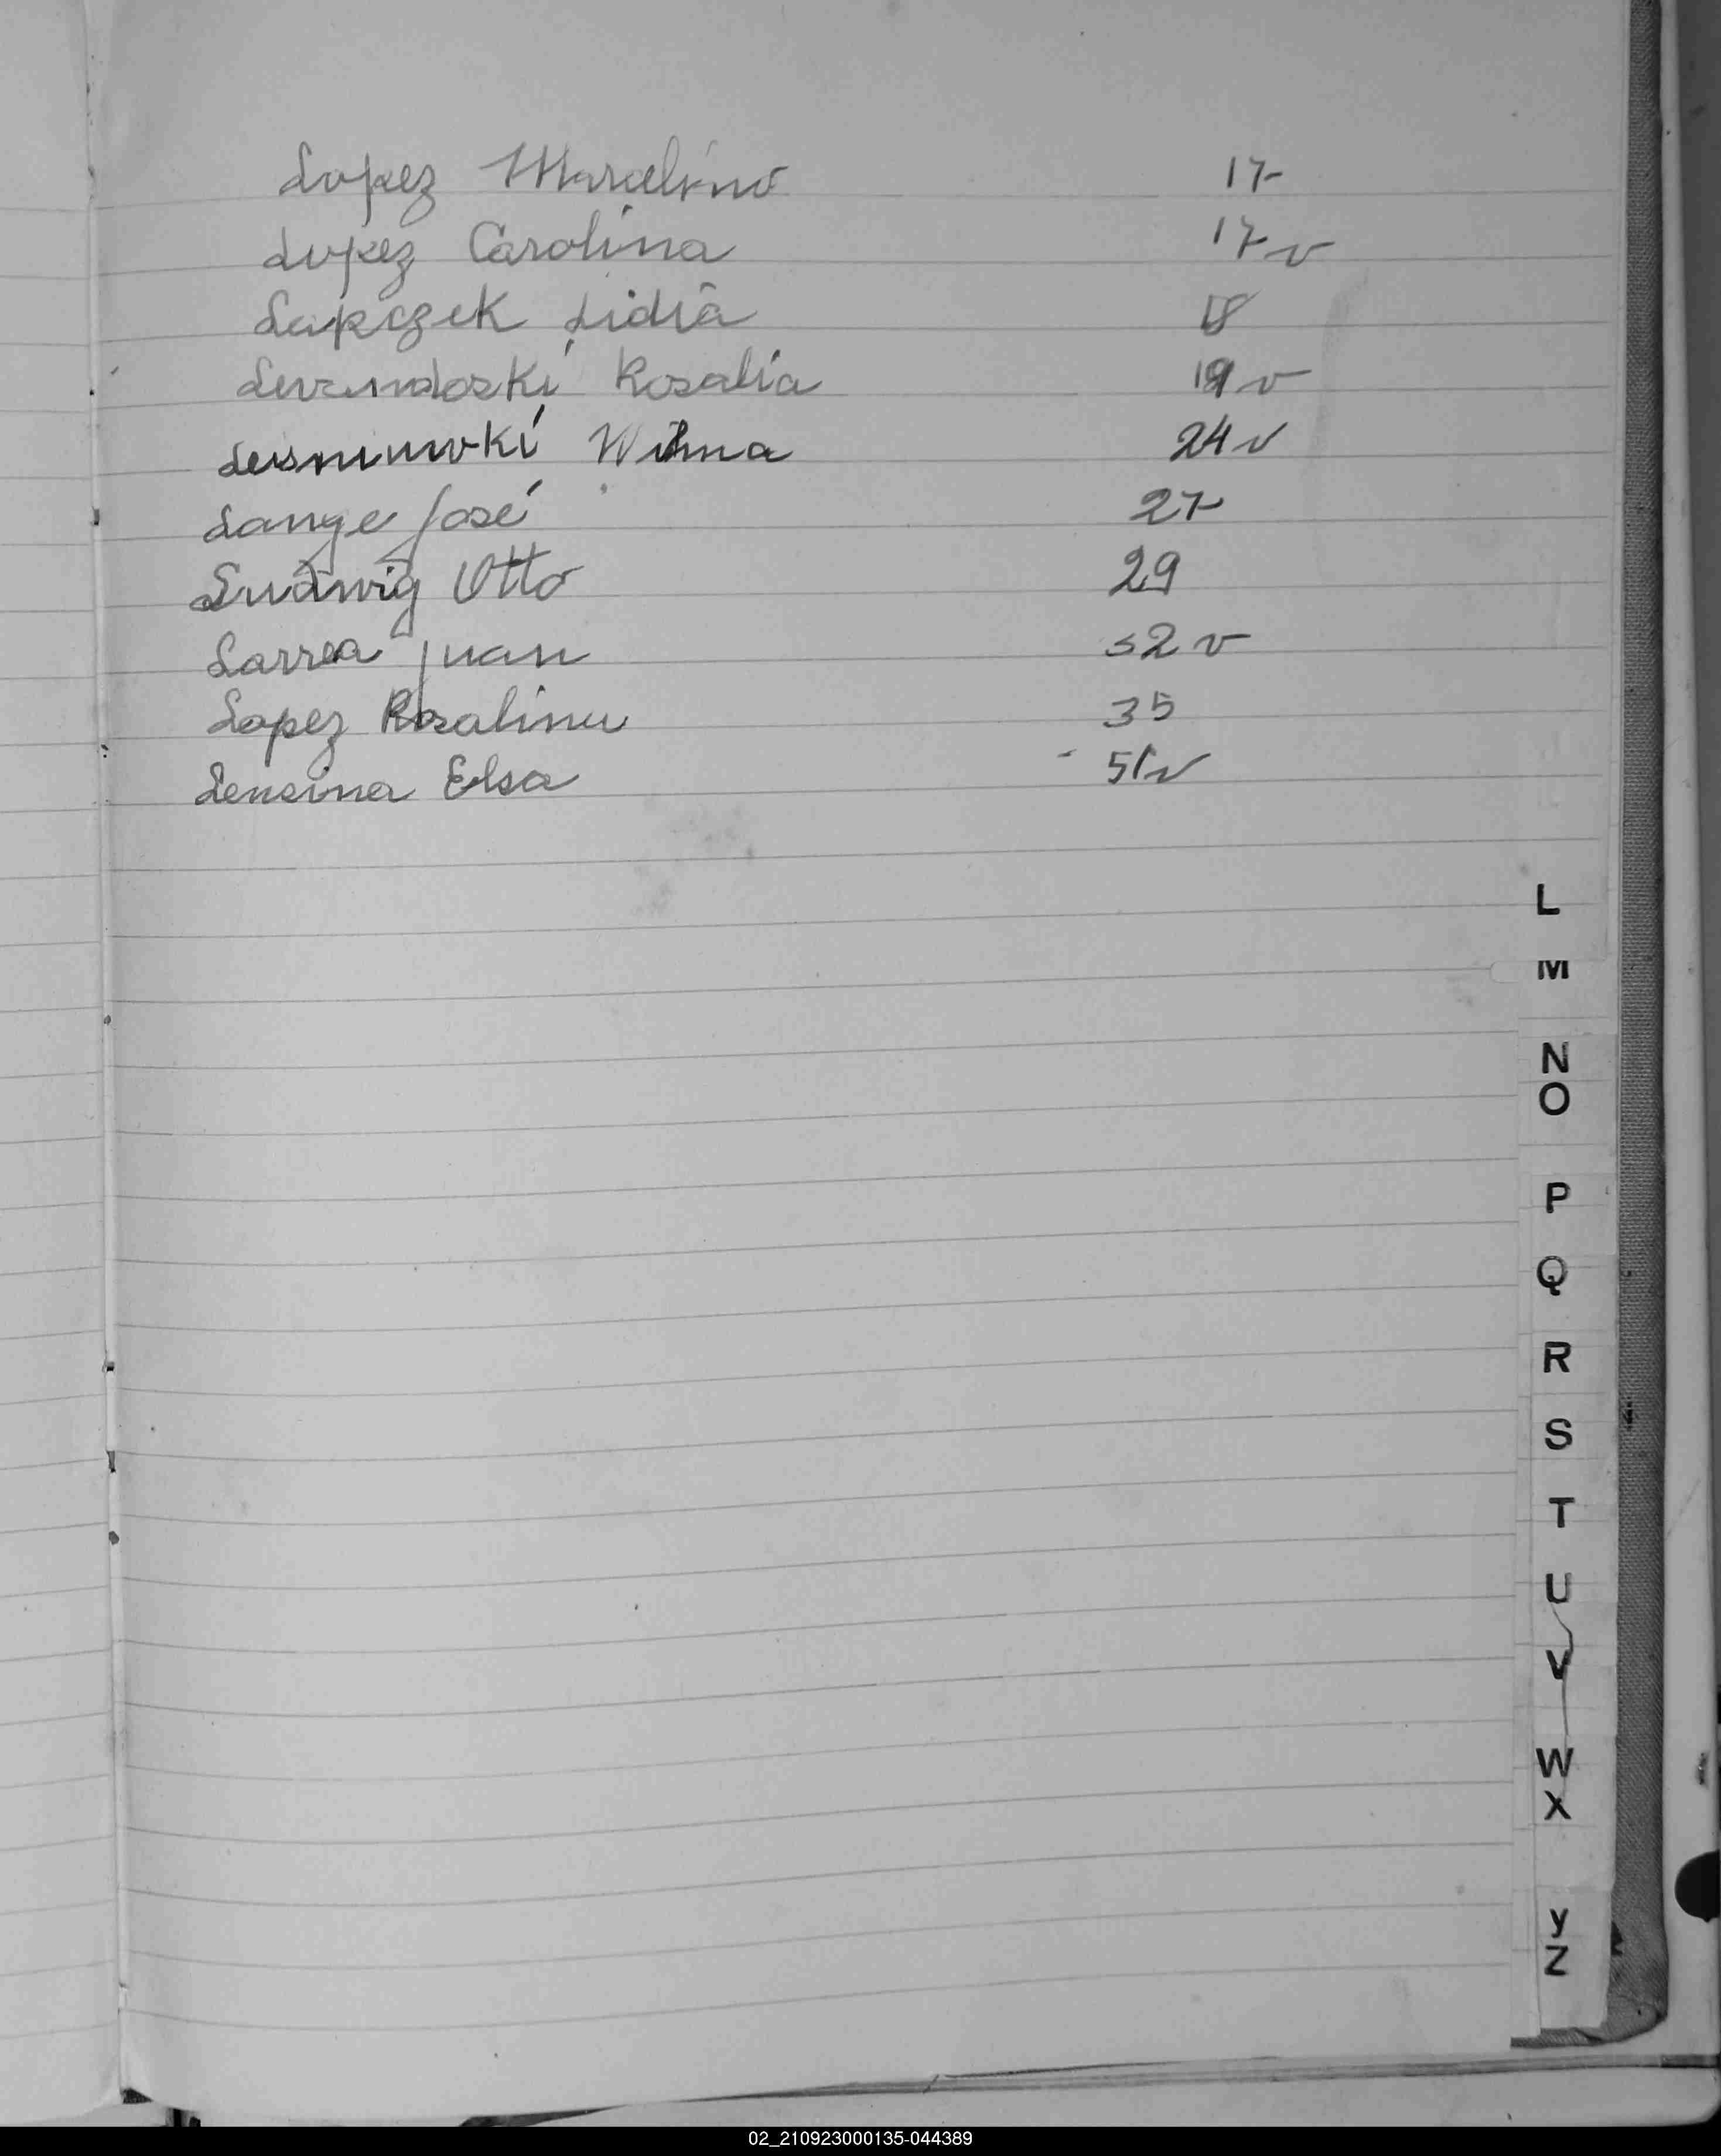 Lopez Marcelino 17
Lopez Carolina 17 v
Lapczek Lidia 18
Rosalia 19 v
Wilma 24 v
Lange José 27
Ludwig Otto 29
Larrea Juan 32 v
Lopez Rosalina 35
Lencina Elsa 51 v
L
M
N
O
P
Q
R
S
T
U
V
W
X
y
Z
02_210923000135-044389